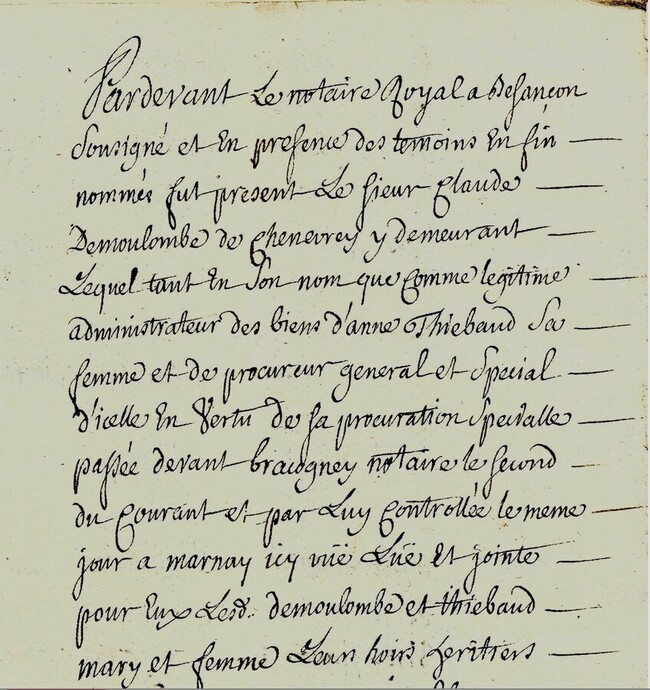 Pardevant Le notaire Royal a Besançon
Sousigné et En presense des temoins En fin
nommés fut present Le sieur Claude
Demoulombe de Chenevrey y demeurant
Lequel tant En Son nom que Comme legitime
administrateur des biens d'anne Thiebaud Sa
femme et de procureur general et Special
d'icelle En Vertu de sa procuration Specialle
passée devant bracogney notaire le second
du Courant et par Luy Controllée le meme
jour a marnay icy vüe Lüe Et jointe
pour Eux Lesd. demoulombe et thiebaud
mary et femme Leurs hoirs heritiers